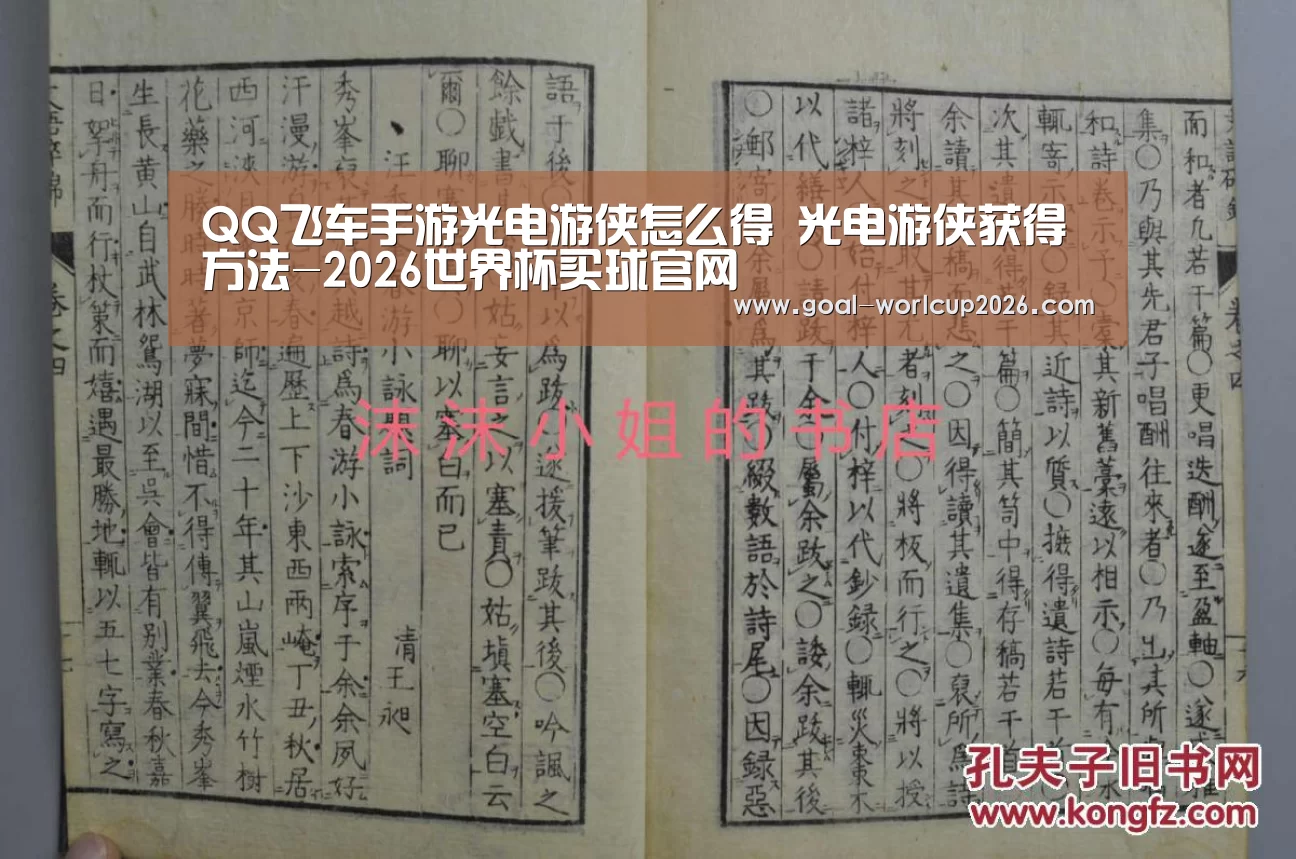 QQ飞车手游光电游侠怎么得 光电游侠获得
方法-2026世界杯买球官网
www.goal-worlcup2026.com
沫沫小姐的书店
而和者凢若干篇〇更唱迭酬遂至盈軸〇遂
集〇乃與其先君子唱酬往來者〇乃出其所
和詩卷示予〇橐其新舊藁遠以相示〇每有
輒寄示〇錄其近詩以質〇摭得遺詩若干
次其遺得若干篇〇簡其笥中得存稿若干首
余讀其稿而悲之〇因得讀其遺集〇裒所爲詩
將刻之取其尤者刻〇將板而行之〇將以授
諸梓人付梓人〇付梓以代鈔録〇輒災棗東不
以代繕請跋于余〇屬余跋之〇諉余跋其後
〇郵寄余屬爲其跋〇綴數語於詩尾〇因録惡
語于後以爲跋遂援筆跋其後〇吟諷之
餘戲書姑妄言之以塞責〇姑塡塞空白云
爾〇聊〇聊以塞白而已
汪秀春游小詠題詞
清王昶
秀峯裒越詩爲春游小詠索序于余余夙好
汗漫游春遍歷上下沙東西兩崦丁丑秋居
西河京師迄今二十年其山嵐煙水竹樹
花藥之勝時時著夢寐間惜不得傳翼飛去今秀峯
生長黄山自武林鴛湖以至吳會皆有别業春秋嘉
日拏舟而行杖策而嬉遇最勝地輒以五七字寫之
卷之四
孔夫子旧书网
www.kongfz.com